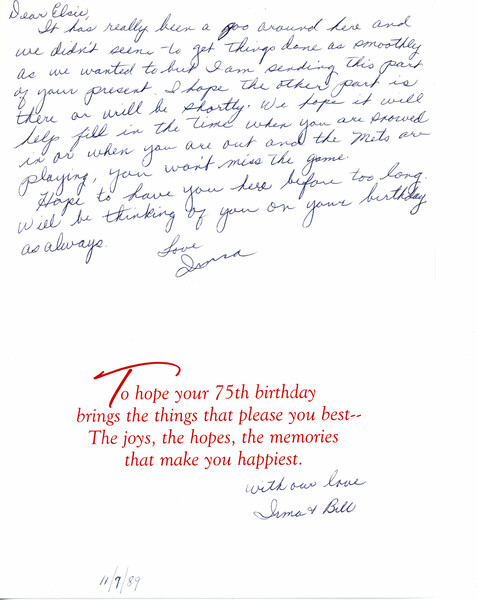 Dear Elsie,
It has really been a zoo around here and
we didn't seem to get things done as smoothly
as we wanted to but I am sending this part
of your present. I hope the other part is
there or will be shortly. We hope it will
help fill in the time when you are snowed
in or when you are out and the Mets are
playing, you won't miss the game.
Hope to have you here before too long.
Will be thinking of you on your birthday
as always.
Love
Irma
To hope your 75th birthday
brings the things that please you best--
The joys, the hopes, the memories
that make you happiest.
with our love
Irma & Bill
11/7/89